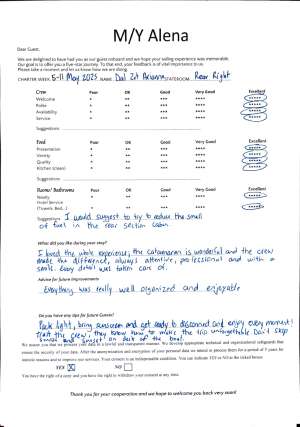 M/Y Alena
Dear Guest,
We are delighted to have had you as our guest onboard and we hope your sailing experience was memorable.
Our goal is to offer you a five-star journey. To that end, your feedback is of vital importance to us.
Please take a moment and let us know how we are doing.
CHARTER WEEK: 5-11 May 2025 NAME: STATEROOM: Rear Right
Crew Poor OK Good Very Good Excellent
Welcome * ** *** **** *****
Polite * ** *** **** *****
Availability * ** *** **** *****
Service * ** *** **** *****
Suggestions:
Food Poor OK Good Very Good Excellent
Presentation * ** *** **** *****
Variety * ** *** **** *****
Quality * ** *** **** *****
Kitchen (clean) * ** *** **** *****
Suggestions:
Rooms/ Bathrooms Poor OK Good Very Good Excellent
Readily * ** *** **** *****
Hotel Service * ** *** **** *****
(Towels, Bed...) * ** *** **** *****
Suggestions: I would suggest to try to reduce the smell
of fuel in the rear section room.
What did you like during your stay?
I loved the whole experience, the catamaran is wonderful and the crew
made the difference, always attentive, professional and with a
smile. Every detail was taken care of.
Advice for future improvements
Everything was really well organized and enjoyable
Do you have any tips for future Guests?
Pack light, bring sunscreen and get ready to disconnect and enjoy every moment!
Trust the crew, they know how to make the trip unforgettable. Don't skip
sunrise and sunset on deck of the boat.
We assure you that we process your data in a lawful and transparent manner. We develop appropriate technical and organizational safeguards that
ensure the security of your data. After the anonymization and encryption of your personal data we intend to process them for a period of 5 years for
internal reasons and to improve our services. Your consent is an indispensable condition. You can indicate YES or NO in the boxes below
YES X NO
You have the right of access and you have the right to withdraw your consent at any time.
Thank you for your cooperation and we hope to welcome you back very soon!